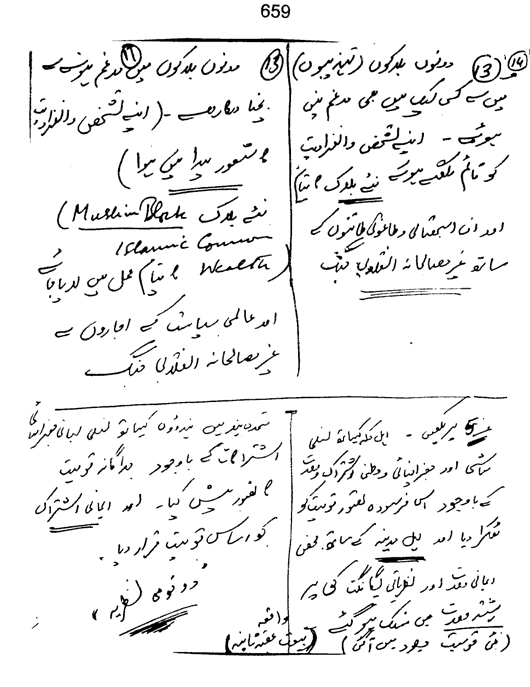 659
(13) (14) دونوں بلاکوں (تہذیبوں)
میں سے کسی ایک میں بھی مدغم نہیں
ہوئے - اپنے تشخص و انفرادیت
کو قائم رکھتے ہوئے نئے بلاک کا قیام
اور ان استحصالی و طاغوتی طاقتوں کے
ساتھ غیر مصالحانہ انقلابی جنگ
(13) دونوں بلاکوں میں (11) مدغم ہونے سے
بچنا درکار ہے - (اپنے تشخص و انفرادیت
کا شعور پیدا ہوا)
نئے بلاک (Muslim Block
Islamic Common
Wealth) کا قیام عمل میں لایا جائے
اور عالمی سیاست کے اداروں سے
غیر مصالحانہ انقلابی جنگ
اہل مکہ کیساتھ نسلی
معاشی اور جغرافیائی وطنی اشتراک وحدت
کے باوجود اس فرسودہ تصور قومیت کو
ٹھکرا دیا اور اہل مدینہ کے ساتھ محض
ایمانی وحدت اور نظریاتی یگانگت کی پر
رشتہ وحدت میں منسلک ہو گئے
(نئی قومیت وجود میں آگئی)
ہندوؤں کیساتھ نسلی لسانی جغرافیائی
اشتراکات کے باوجود جداگانہ قومیت
کا تصور پیش کیا - اور ایمانی اشتراک
کو اساس قومیت قرار دیا -
"دو قومی نظریہ"
واقعہ
(بیعت عقبہ ثانیہ)